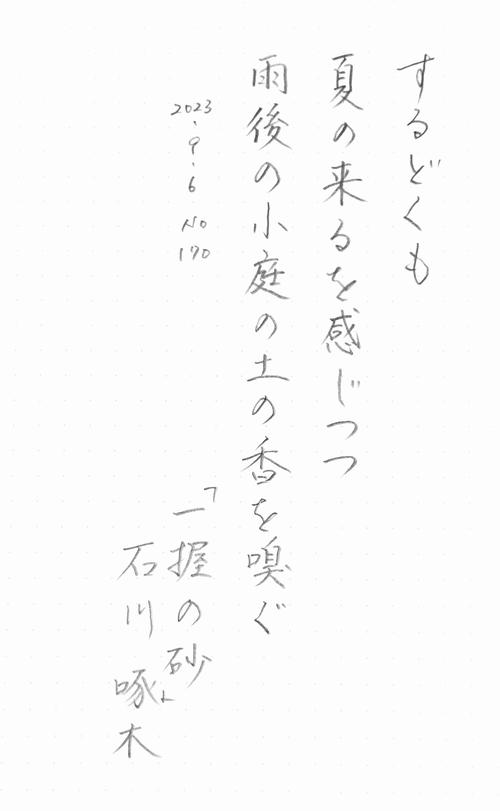 するどくも
夏の来るを感じつつ
雨後の小庭の土の香を嗅ぐ
2023.9.6 No 170
「一握の砂」
石川 啄木